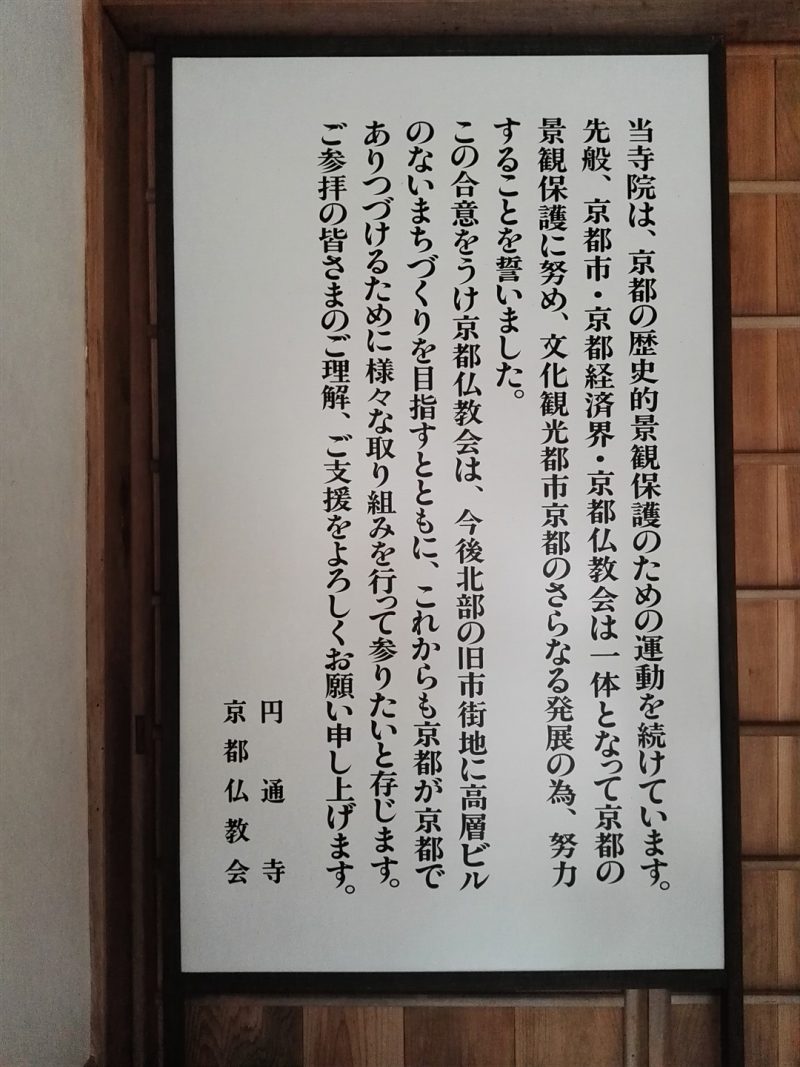 当寺院は、京都の歴史的景観保護のための運動を続けています。
先般、京都市・京都経済界・京都仏教会は一体となって京都の
景観保護に努め、文化観光都市京都のさらなる発展の為、努力
することを誓いました。
この合意をうけ京都仏教会は、今後北部の旧市街地に高層ビル
のないまちづくりを目指すとともに、これからも京都が京都で
ありつづけるために様々な取り組みを行って参りたいと存じます。
ご参拝の皆さまのご理解、ご支援をよろしくお願い申し上げます。
円通寺
京都仏教会